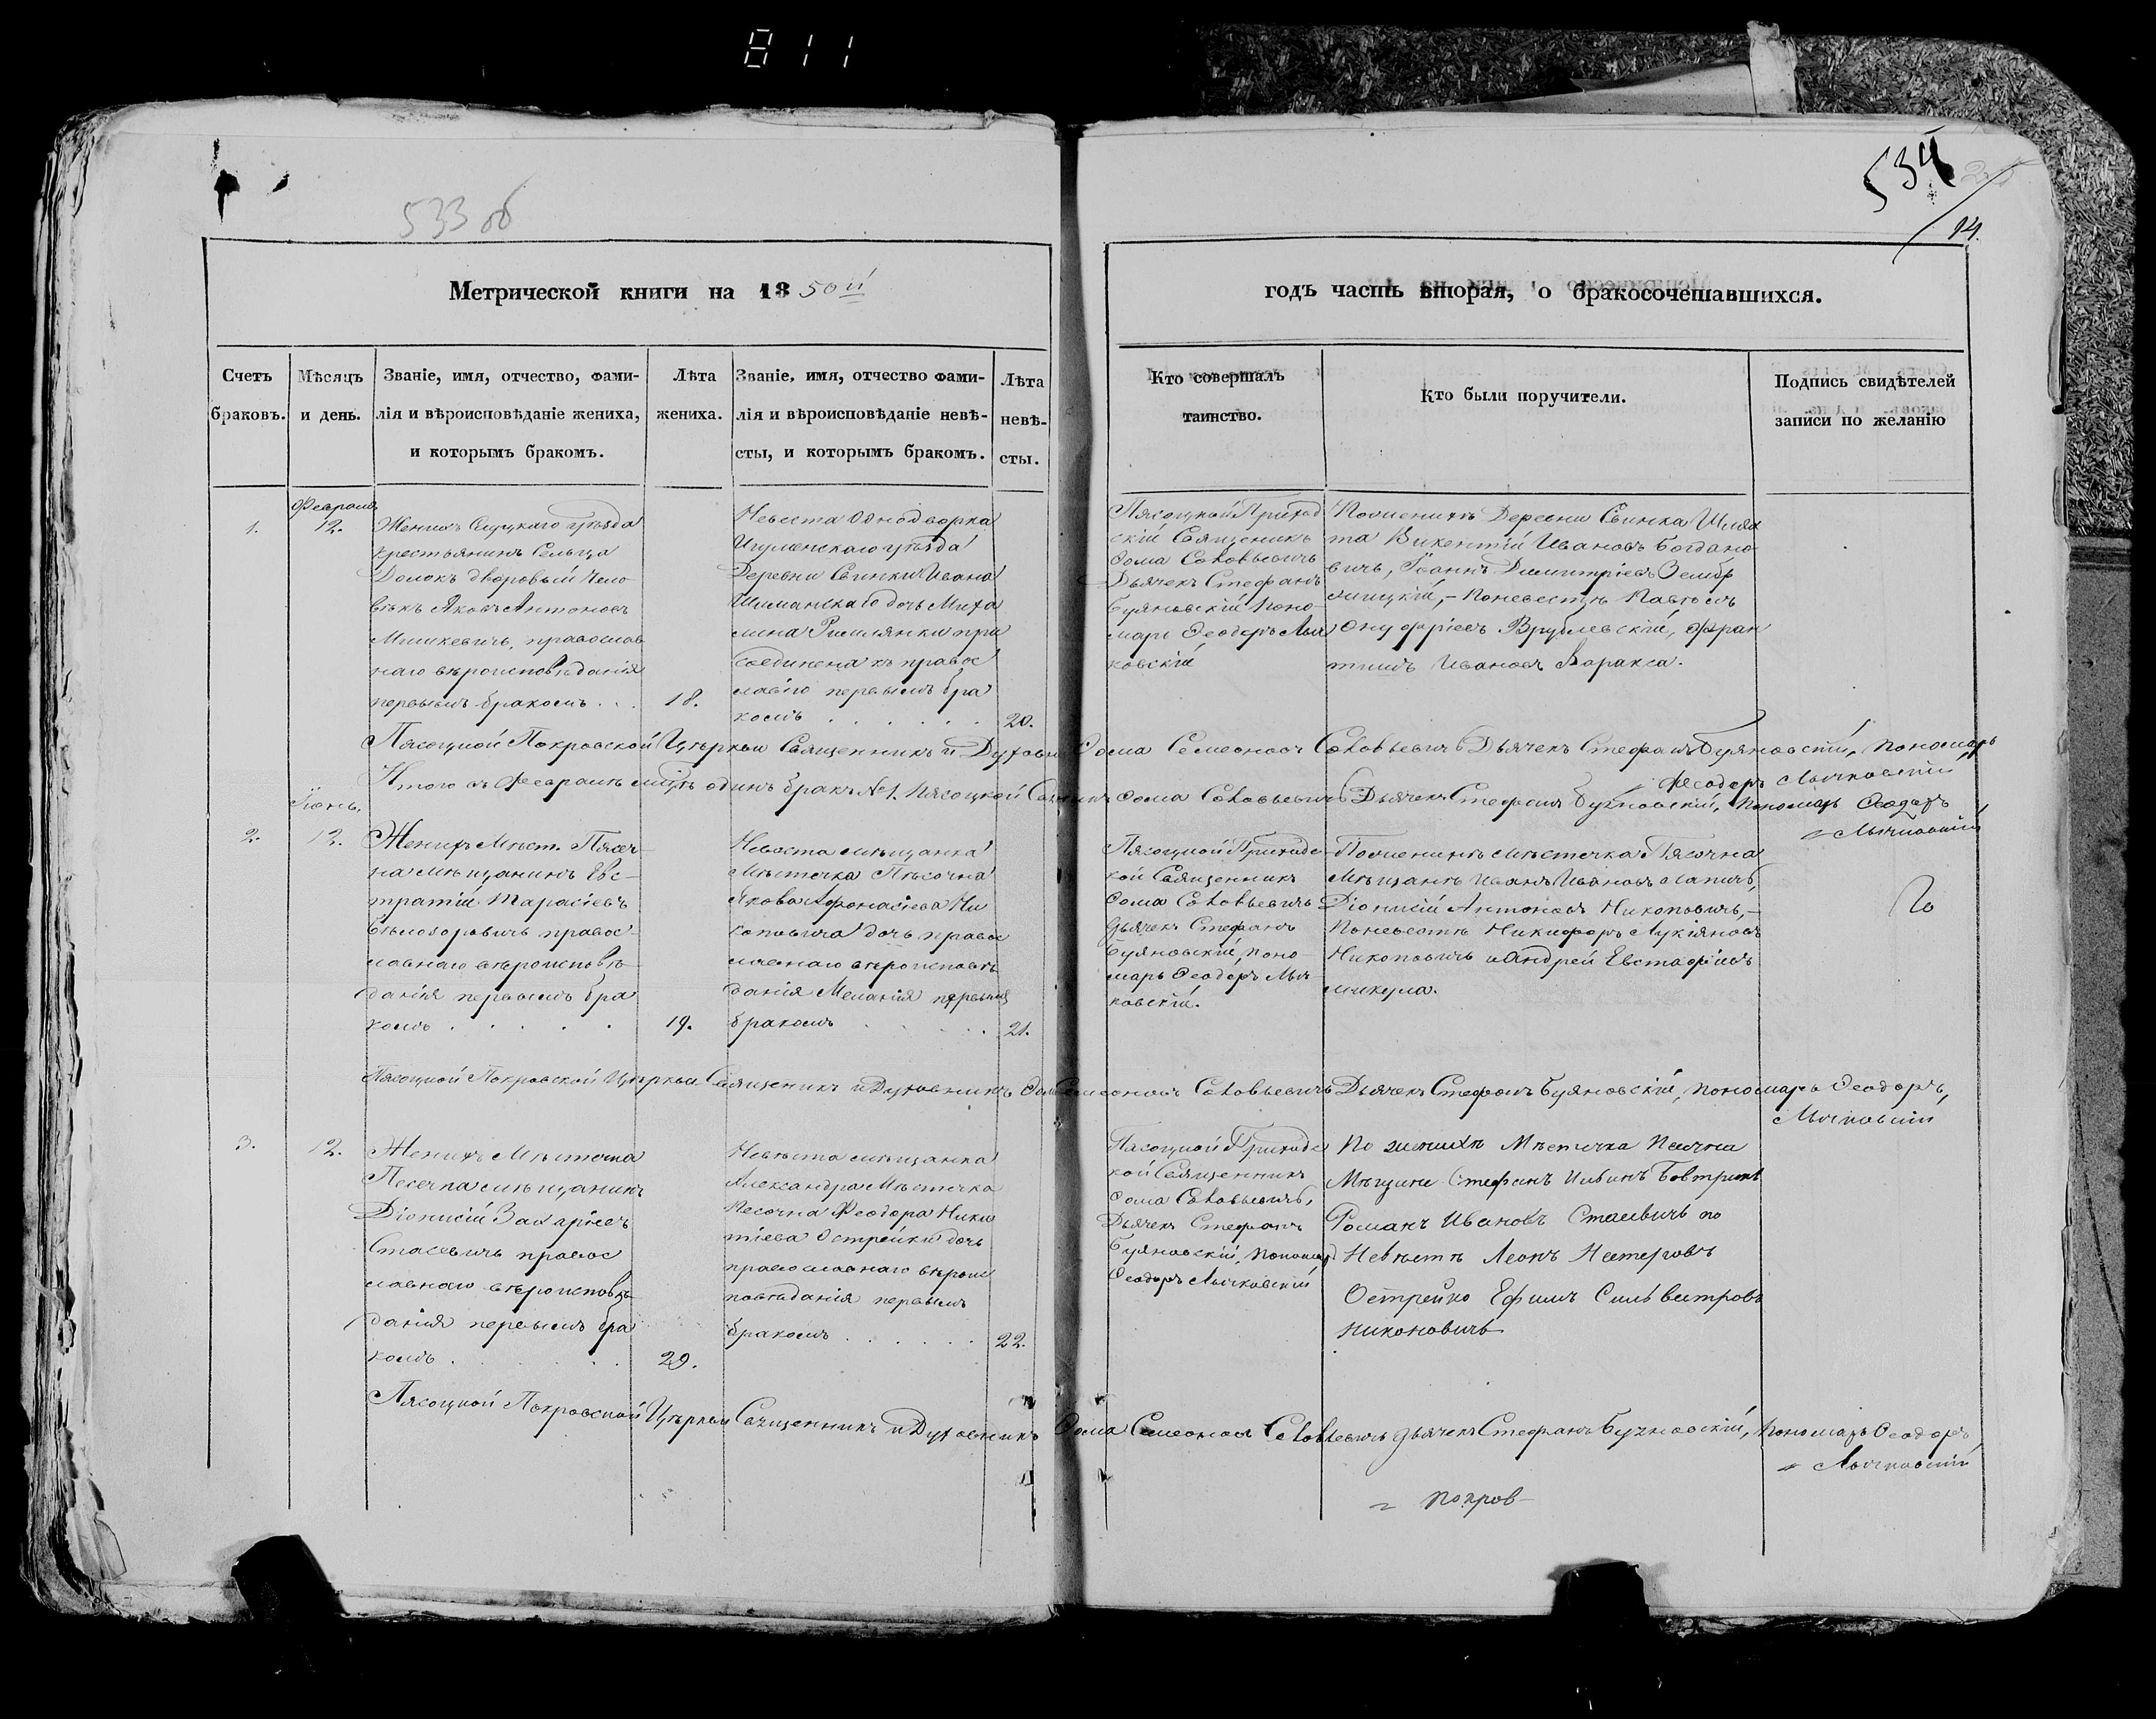 811
533 об
534
14.
Метрической книги на 1850й
годъ часть вторая, о бракосочетавшихся.
Счетъ
браковъ.
Мѣсяцъ
и день.
Званіе, имя, отчество, фами-
лія и вѣроисповѣданіе жениха,
и которымъ бракомъ.
Лѣта
жениха.
Званіе, имя, отчество фами-
лія и вѣроисповѣданіе невѣ-
сты, и которымъ бракомъ.
Лѣта
невѣ-
сты.
Кто совершалъ
таинство.
Кто были поручители.
Подпись свидѣтелей
записи по желанію
1.
Февраль
12.
Женихъ Слуцкаго уѣзда
крестьянинъ Сельца
Домокъ дворовый чело
вѣкъ Яковъ Антоновъ
Мишкевичъ, православ
наго вѣроисповѣданія
первымъ бракомъ . . .
18.
Невеста Однодворка
Игуменскаго уѣзда
Деревни Свинки Ивана
Шиманскаго дочь Миха
лина Римлянки при
соединена къ правос
лавію первымъ бра
комъ . . . . . .
20.
Пясоцкой Приход
скій Священикъ
Ѳома Соловьевичъ
Дьячекъ Стефанъ
Буяновскій Поно-
марь Ѳеодоръ Лыч
ковскій
Поженихѣ Деревни Свинка Шлях
та Викентій Ивановъ Богдано
вичъ, Іоаннъ Димитріевъ Зембр
жицкій, - Поневестѣ Павелъ
Онуфріевъ Врублевскій, Фран
тишъ Ивановъ Варакса.
Пясоцкой Покровской Церкви Священникъ и Духовникъ Ѳома Семеоновъ Соловьевичъ Дьячекъ Стефанъ Буяновскій, Пономарь
Ѳеодоръ Лычковскій
Итого въ Февралѣ мцѣ одинъ бракъ №1. Пясоцкой Ѳома Соловьевичъ Дьячекъ Стефанъ Буяновскій, Пономарь Ѳеодоръ
Лычковскій
2.
Іюнь.
12.
Женихъ Мѣст. Пясеч-
на мѣщанинъ Евс-
тратій Тарасіевъ
Бѣлозоровичъ правос-
лавнаго вѣроисповѣ-
данія первымъ бра
комъ . . . . .
19.
Невеста мѣщанка
Мѣстечка Пѣсочна
Якова Афонасіева Ни
коповича дочь правос
лавнаго вѣроисповѣ
данія Меланія первымъ
бракомъ . . . . .
21.
Пясоцкой Приходс-
кой Священникъ
Ѳома Соловьевичъ
Дьячекъ Стефанъ
Буяновскій, Поно-
марь Ѳеодоръ Лыч-
ковскій.
Поженихѣ мѣстечка Пясочна
Мѣщанѣ Иванъ Ивановъ Лапичъ,
Діонисій Антоновъ Никоповичъ, -
Поневестѣ Никифоръ Лукіяновъ
Никоповичъ и Андрей Евстафіевъ
Микула.
Пясоцкой Покровской Церкви Священикъ и Духовникъ Ѳома Семеоновъ Соловьевичъ Дьячекъ Стефанъ Буяновскій, Пономарь Ѳеодоръ,
Лычковскій
3.
12.
Женихъ Мѣстечка
Песечна мѣщанинъ
Діонисій Захаріевъ
Стасевичъ правос
лавнаго вѣроисповѣ-
данія первымъ бра
комъ . . . . .
29.
Невѣста мѣщанка
Александра Мѣстечка
Песочна Ѳеодора Ники
тіева Острейки дочь
православнаго вѣрои
повѣданія первымъ
бракомъ . . . . . .
22.
Пясоцкой Приходс
кой Священникъ
Ѳома Соловьевичъ,
Дьячекъ Стефанъ
Буяновскій, Пономарь
Ѳеодоръ Лычковскій
По женихѣ Мѣстечка Песочна
Мѣщане Стефанъ Ильинъ Бовтрикъ
Романъ Ивановъ Стасевичъ по
Невѣстѣ Леонъ Нестеровъ
Острейко Ефимъ Сильвестровъ
Никоновичъ
Пясоцкой Покровской Церкви Священникъ и Духовникъ Ѳома Семеоновъ Соловьевичъ Дьячекъ Стефанъ Буяновскій, Пономарь Ѳеодоръ
Лычковскій
Покров-